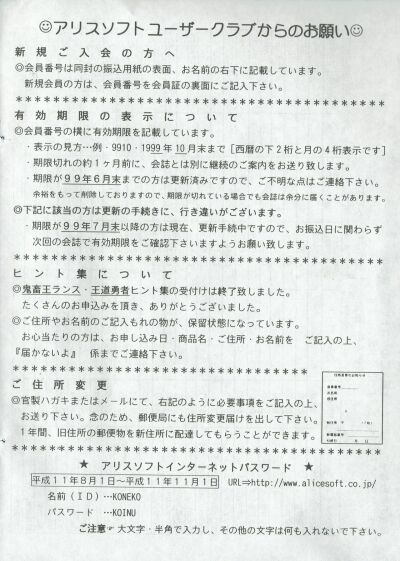 ☺アリスソフトユーザークラブからのお願い☺
新規ご入会の方へ
◎会員番号は同封の振込用紙の表面、お名前の右下に記載しています。
新規会員の方は、会員番号を会員証の裏面にご記入下さい。
有効期限の表示について
◎会員番号の横に有効期限を記載しています。
・表示の見方…例・9910・1999年10月末まで［西暦の下2桁と月の4桁表示です］
・期限切れの約1ヶ月前に、会誌とは別に継続のご案内をお送り致します。
・期限が99年6月末までの方は更新済みですので、ご不明な点はご連絡下さい。
余裕をもって削除しておりますので、期限が切れている場合でも会誌は余分に届くことがあります。
◎下記に該当の方は更新の手続きに、行き違いがございます。
・期限が99年7月末以降の方は現在、更新手続中ですので、お振込日に関わらず
次回の会誌で有効期限をご確認下さいますようお願い致します。
ヒント集について
◎鬼畜王ランス・王道勇者ヒント集の受付けは終了致しました。
たくさんのお申込みを頂き、ありがとうございました。
◎ご住所やお名前のご記入もれの物が、保留状態になっています。
お心当たりの方は、お申し込み日・商品名・ご住所・お名前を　ご記入の上、
『届かないよ』　係までご連絡下さい。
ご住所変更
◎官製ハガキまたはメールにて、右記のように必要事項をご記入の上、
お送り下さい。念のため、郵便局にも住所変更届けを出して下さい。
1年間、旧住所の郵便物を新住所に配達してもらうことができます。
★　アリスソフトインターネットパスワード　★
平成11年8月1日～平成11年11月1日　URL⇒http://www.alicesoft.co.jp/
名前（ＩＤ）…KONEKO
パスワード　…KOINU
ご注意☞ 大文字・半角で入力し、その他の文字は何も入れないで下さい。